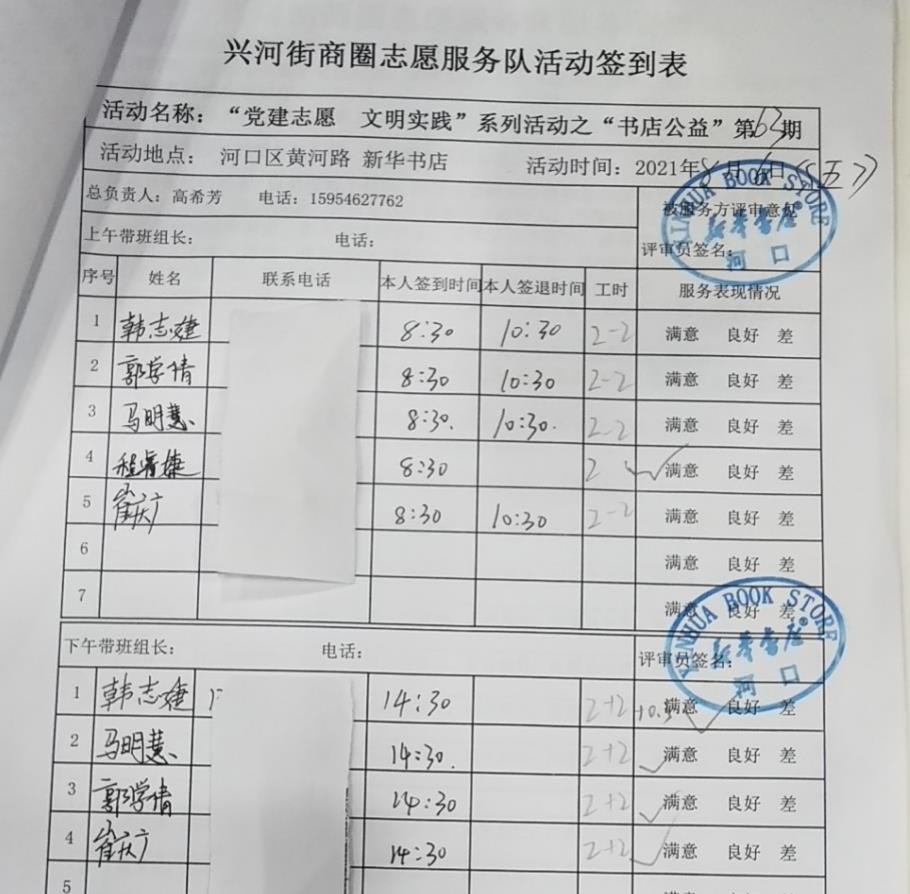 兴河街商圈志愿服务队活动签到表
活动名称：“党建志愿 文明实践”系列活动之“书店公益”第63期
活动地点： 河口区黄河路 新华书店 活动时间：2021年8月6日（五）
总负责人：高希芳 电话：15954627762 被服务方评审意见
上午带班组长： 电话： 评审员签名：
XINHUA BOOK STORE
新华书店
河口
序号 姓名 联系电话 本人签到时间 本人签退时间 工时 服务表现情况
1 韩志婕 8:30 10:30 2-2 满意 良好 差
2 郭学倩 8:30 10:30 2-2 满意 良好 差
3 马明慧 8:30. 10:30. 2-2 满意 良好 差
4 程睿婕 8:30 2 满意 良好 差
5 崔庆广 8:30 10:30 2-2 满意 良好 差
6 满意 良好 差
7 满意 良好 差
下午带班组长： 电话： 评审员签名：
XINHUA BOOK STORE
新华书店
河口
1 韩志婕 14:30 2+2+0.5 满意 良好 差
2 马明慧 14:30. 2+2 满意 良好 差
3 郭学倩 14:30 2+2 满意 良好 差
4 崔庆广 14:30 2+2 满意 良好 差
5